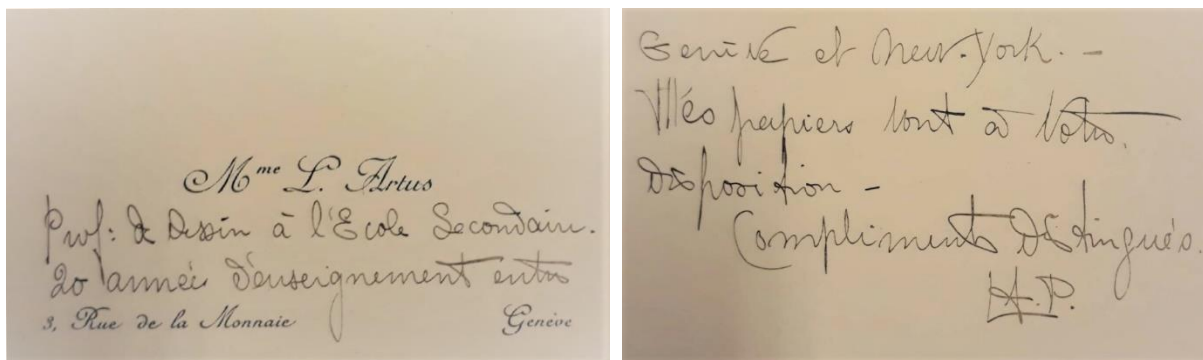 Mme L. Artus
Prof: de Dessin à l'Ecole Secondaire.
20 années d'enseignement entre
3, Rue de la Monnaie Genève
Genève et New-York. -
Mes papiers sont à votre
disposition -
Compliments distingués.
A.P.